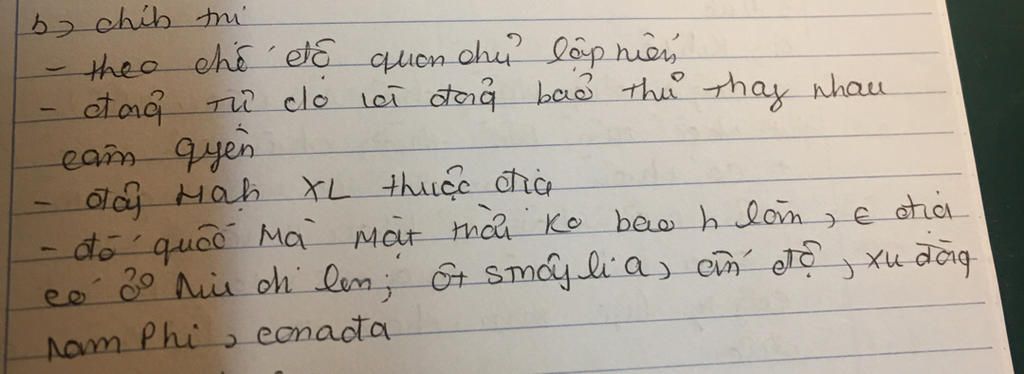 b, chính trị
- theo chế độ quân chủ lập hiến
- đảng Tự do và đảng bảo thủ thay nhau
cầm quyền
- đẩy mạnh XL thuộc địa
- đế quốc Mà Mặt trời ko bao h lặn, € địa
có ở Niu di len, Ôt smây li a, ấn độ, xu đăng
Nam Phi, canada